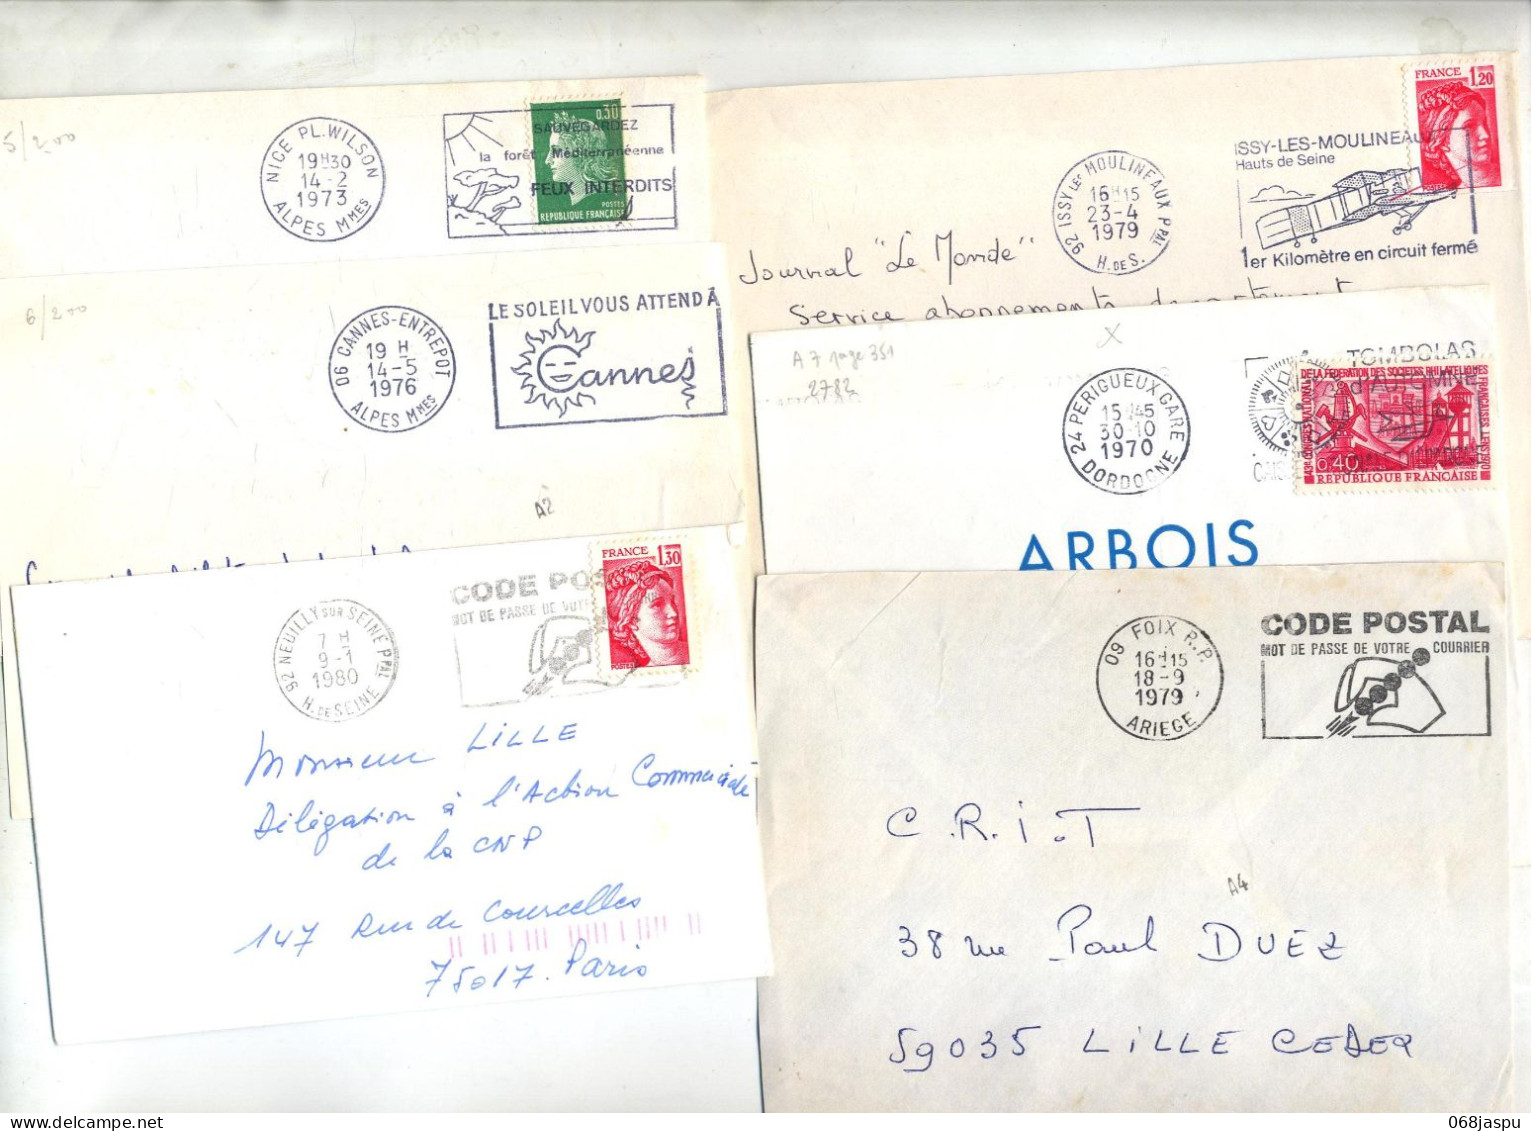 5/200
NICE PL. WILSON
19H30
14-2
1973
ALPES MMES
SAUVEGARDEZ
la forêt Méditerranéenne
FEUX INTERDITS
0,30
POSTES
REPUBLIQUE FRANÇAISE
92 ISSY LES MOULINEAUX PPAL
16H15
23-4
1979
H. DE S.
ISSY-LES-MOULINEAUX
Hauts de Seine
1er Kilomètre en circuit fermé
FRANCE 1,20
POSTES
Journal "Le Monde"
Service abonnements
6/200
06 CANNES-ENTREPOT
19 H
14-5
1976
ALPES MMES
LE SOLEIL VOUS ATTEND À
Cannes
A2
A 7 page 351
2782
X
24 PERIGUEUX GARE
15H45
30-10
1970
DORDOGNE
TOMBOLAS
d'AUTOMNE
43e CONGRES NATIONAL
DE LA FEDERATION DES SOCIETES PHILATELIQUES
FRANÇAISES LENS 1970
0,40
REPUBLIQUE FRANÇAISE
ARBOIS
92 NEUILLY SUR SEINE PPAL
7 H
9-1
1980
H. DE SEINE
CODE POS
MOT DE PASSE DE VOTRE
FRANCE 1,30
POSTES
Monsieur LILLE
Délégation à l'Action Commerciale
de la CNP
147 Rue de Courcelles
75017 Paris
09 FOIX R.P.
16H15
18-9
1979
ARIEGE
CODE POSTAL
MOT DE PASSE DE VOTRE COURRIER
C.R.I.T
A4
38 rue Paul DUEZ
59035 LILLE CEDEX
068jaspu